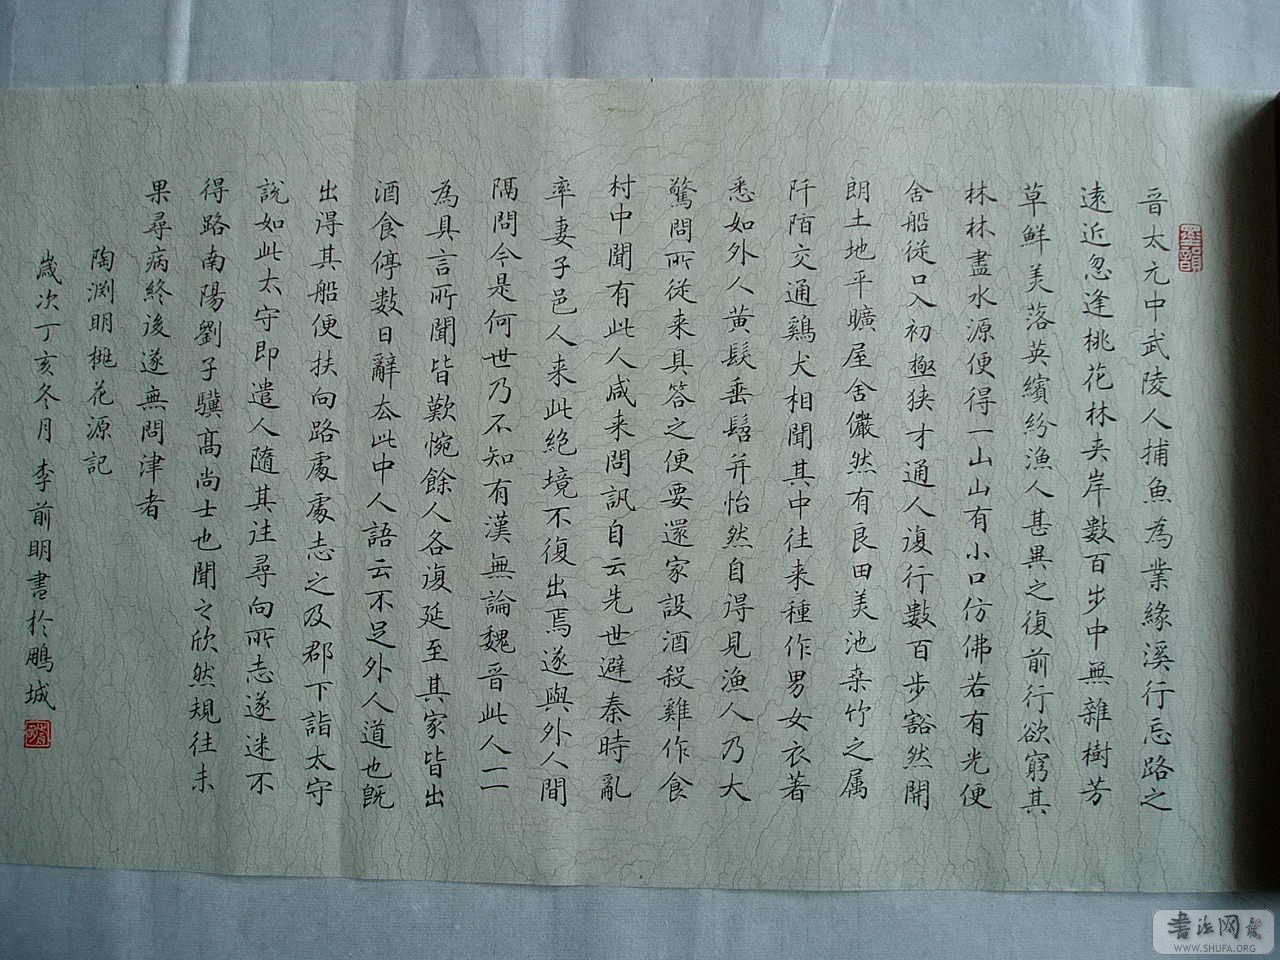 墨韻
晉太元中武陵人捕魚為業緣溪行忘路之
遠近忽逢桃花林夹岸數百步中無雜樹芳
草鮮美落英繽紛漁人甚異之復前行欲窮其
林林盡水源便得一山山有小口仿佛若有光便
舍船從口入初極狭才通人復行數百步豁然開
朗土地平曠屋舍儼然有良田美池桒竹之属
阡陌交通鷄犬相聞其中往来種作男女衣著
悉如外人黃髮垂髫并怡然自得見漁人乃大
驚問所從来具答之便要還家設酒殺雞作食
村中聞有此人咸来問訊自云先世避秦時亂
率妻子邑人来此絕境不復出焉遂與外人間
隔問今是何世乃不知有漢無論魏晉此人一一
為具言所聞皆歎惋餘人各復延至其家皆出
酒食停數日辭去此中人語云不足外人道也既
出得其船便扶向路處處志之及郡下詣太守
說如此太守即遣人隨其往尋向所志遂迷不
得路南陽劉子驥高尚士也聞之欣然規往未
果尋病終後遂無問津者
陶渊明桃花源記
歲次丁亥冬月李前明書於鵬城
書法网
WWW.SHUFA.ORG